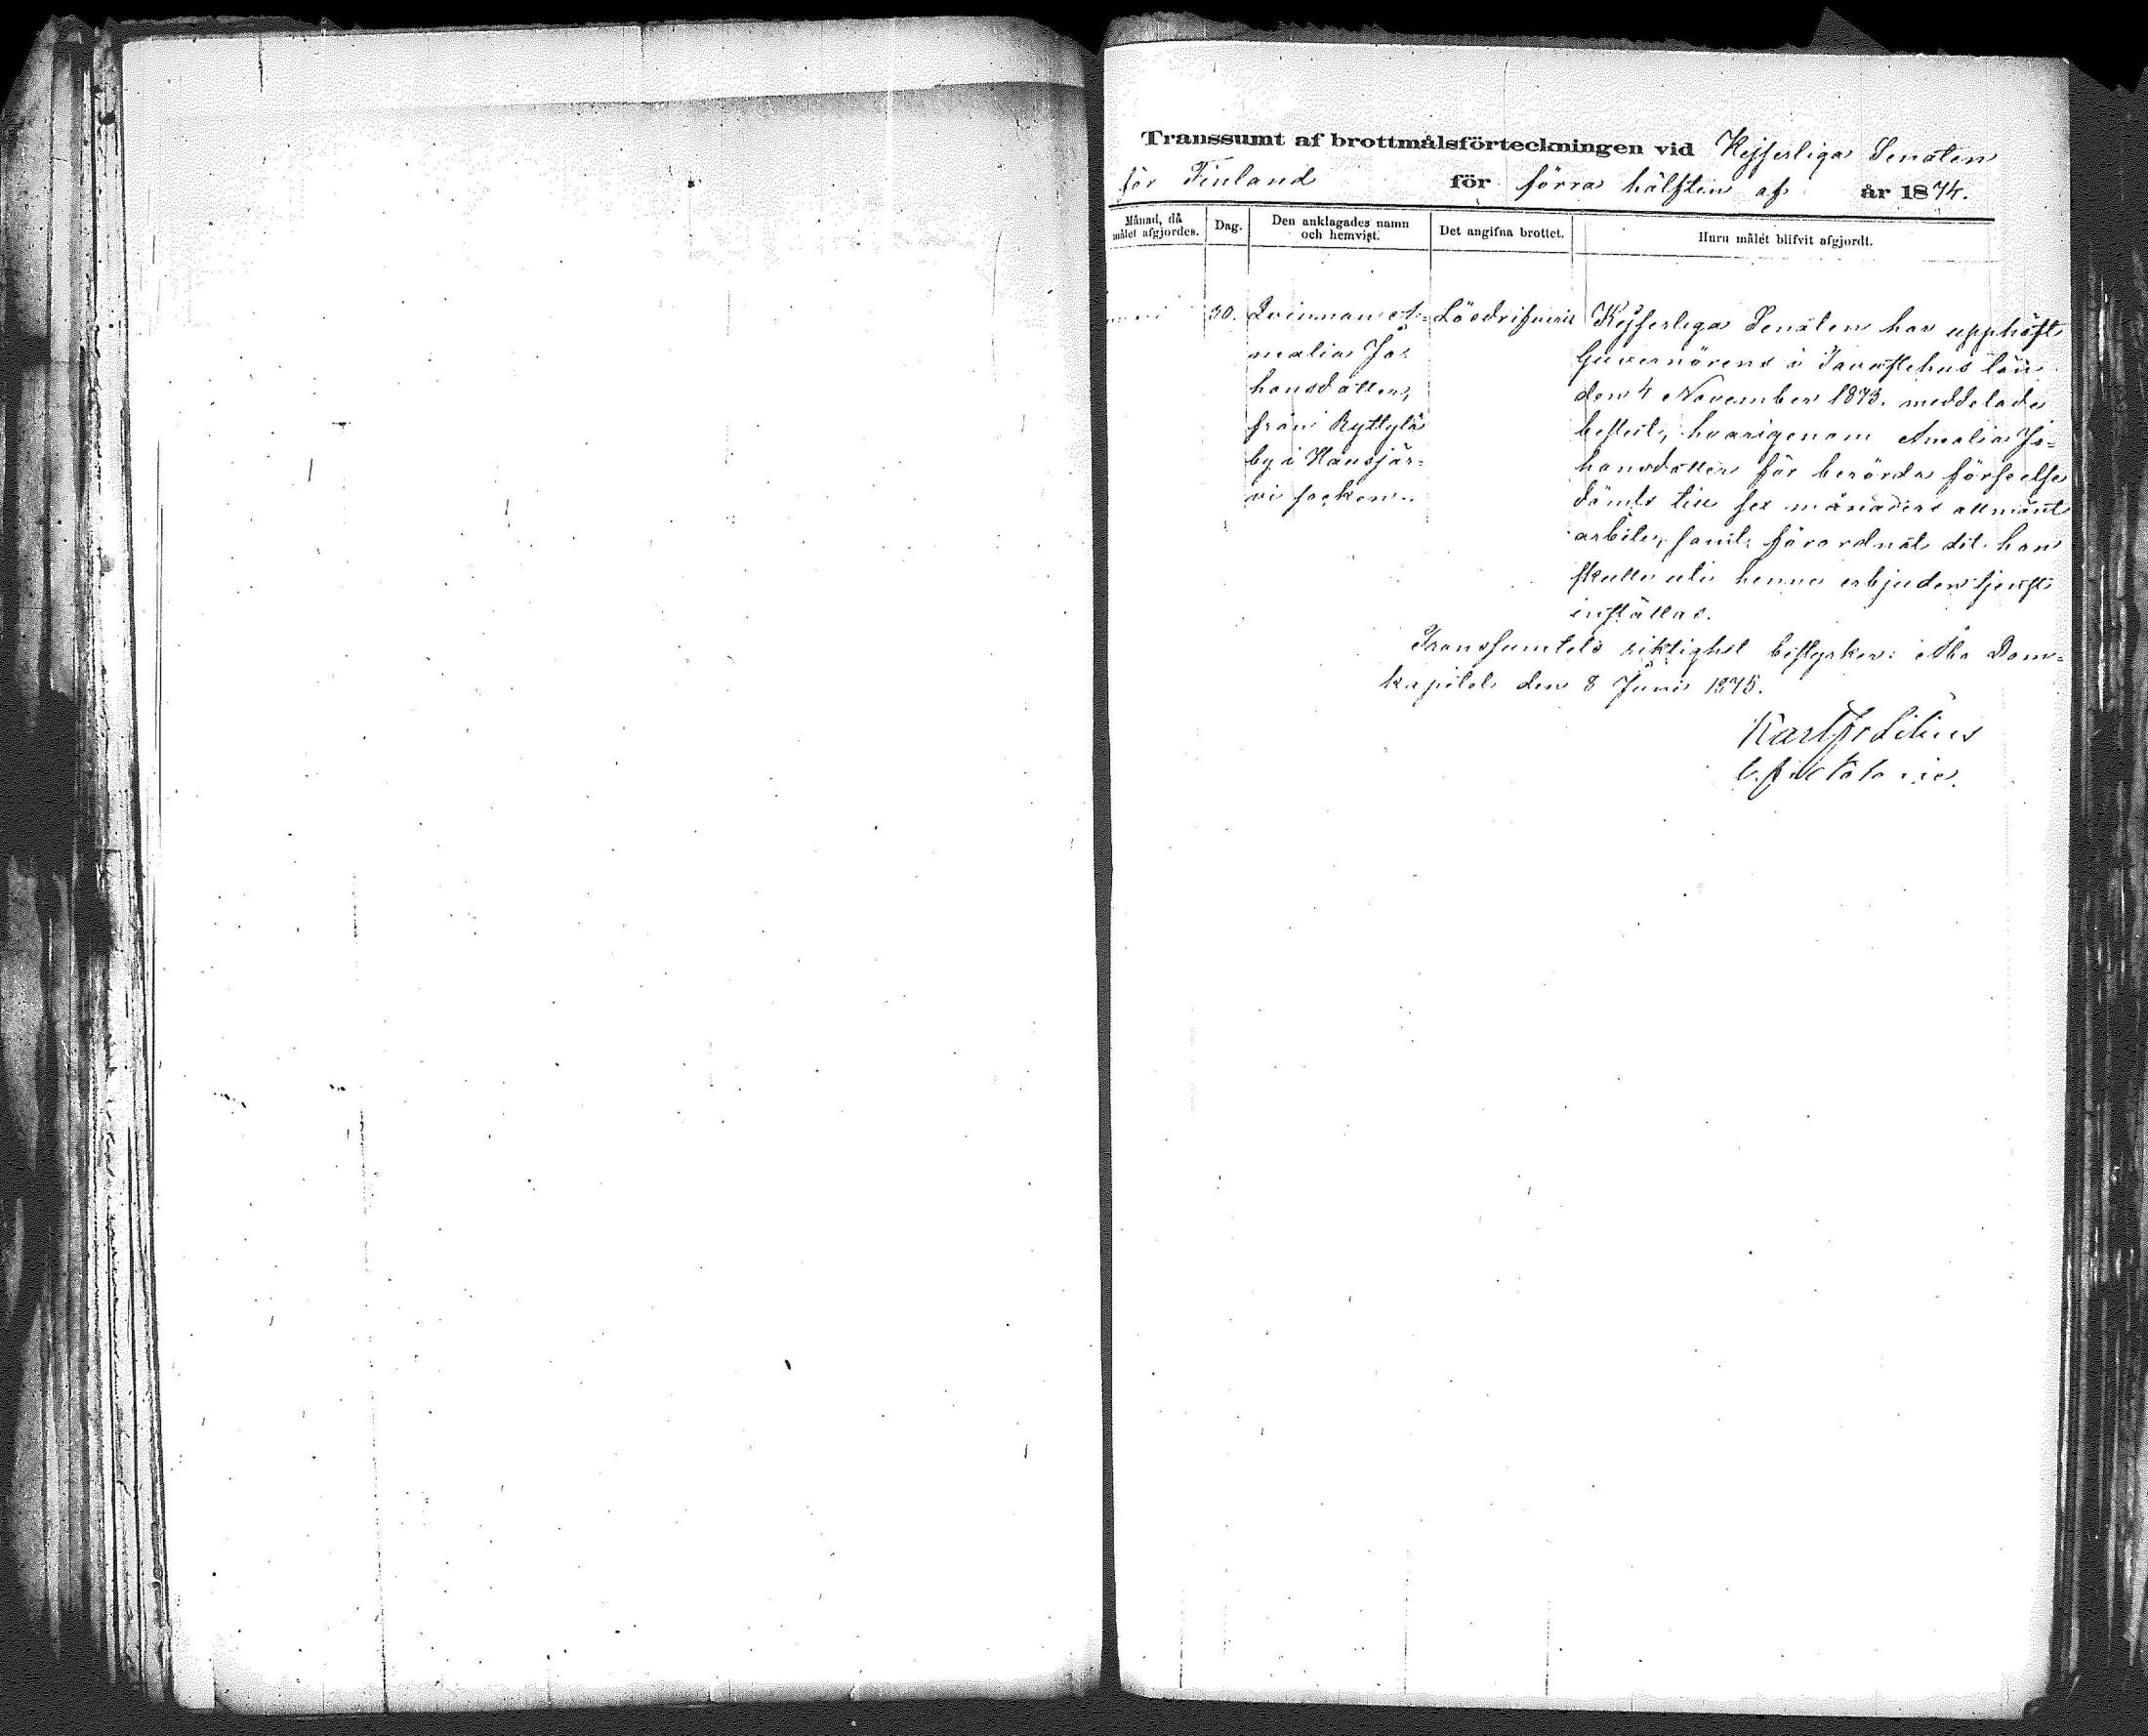 Transsumt af brottmålsförteckningen vid Kejserliga Senaten
för Finland för förra hälften af år 1874.
Månad, då målet afgjordes. Dag. Den anklagades namn och hemvist. Det angifna brottet. Huru målet blifvit afgjordt.
30. Qvinnan A-
malia Jo-
hansdotter,
från Ryttylä
by i Hausjär-
vi socken.
Lösdrifveri
Kejserliga Senaten har upphäft
Guvernörens i Tavastehus län
den 4 November 1873 meddelade
beslut, hvarigenom Amalia Jo-
hansdotter för berörda förseelse
dömts till sex månaders allmänt
arbete, samt förordnat det hon
skulle uti henne erbjuden tjenst
inställas.
Transsumtets riktighet bestyrker: Åbo Dom-
kapitel den 8 Juni 1875.
Notarie.